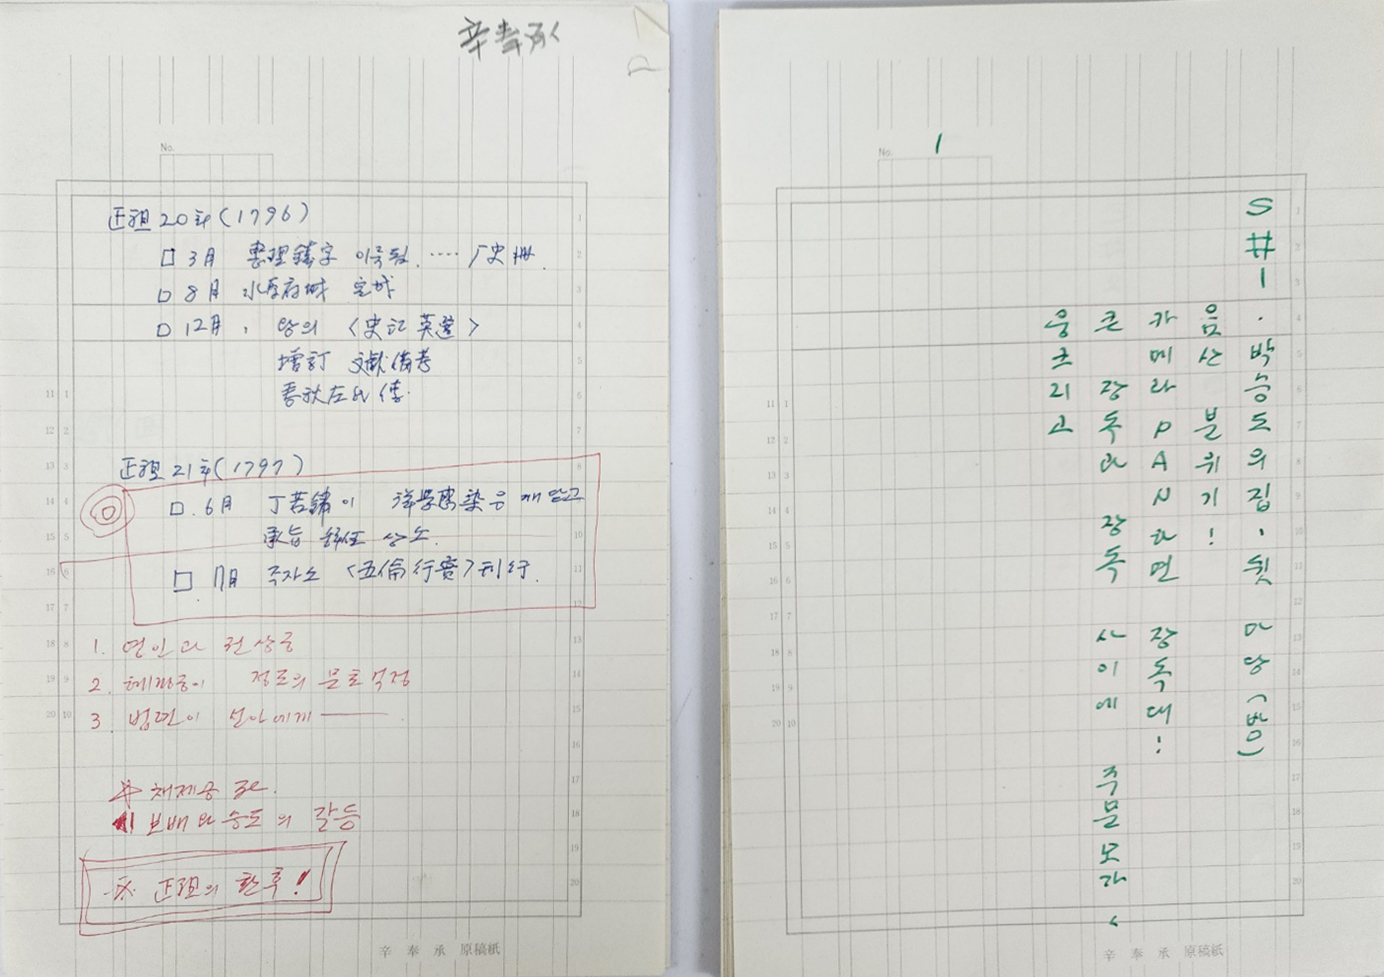 辛奉承
No.
正祖 20年(1796)
□ 3月 整理鑄字 이룩됨. ‥‥ 史冊.
□ 8月 水原府城 完城
□ 12月, 왕의 〈史記英選〉
增訂 文獻備考
春秋左氏傳.
正祖 21年(1797)
◎ □. 6月 丁若鏞이
承旨 辭任 상소.
□. 7月 주자소 〈五倫行實〉刊行.
1. 연인과
2. 혜경궁이 정조의 문로 걱정
3. 범련이 에게 ——
채제공
보배와 승도의 갈등
※ 正祖의 환후!
辛奉承 原稿紙
No. 1
S#1. 박승도의 집, 뒷마당(밤)
음산분위기!
카메라 PAN 하면 장독대!
큰 장독과 장독 사이에 주문모가
웅크리고
辛奉承 原稿紙